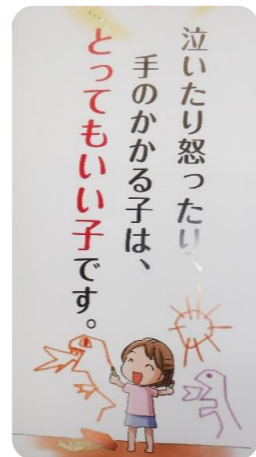 泣いたり怒ったり、
手のかかる子は、
とってもいい子です。